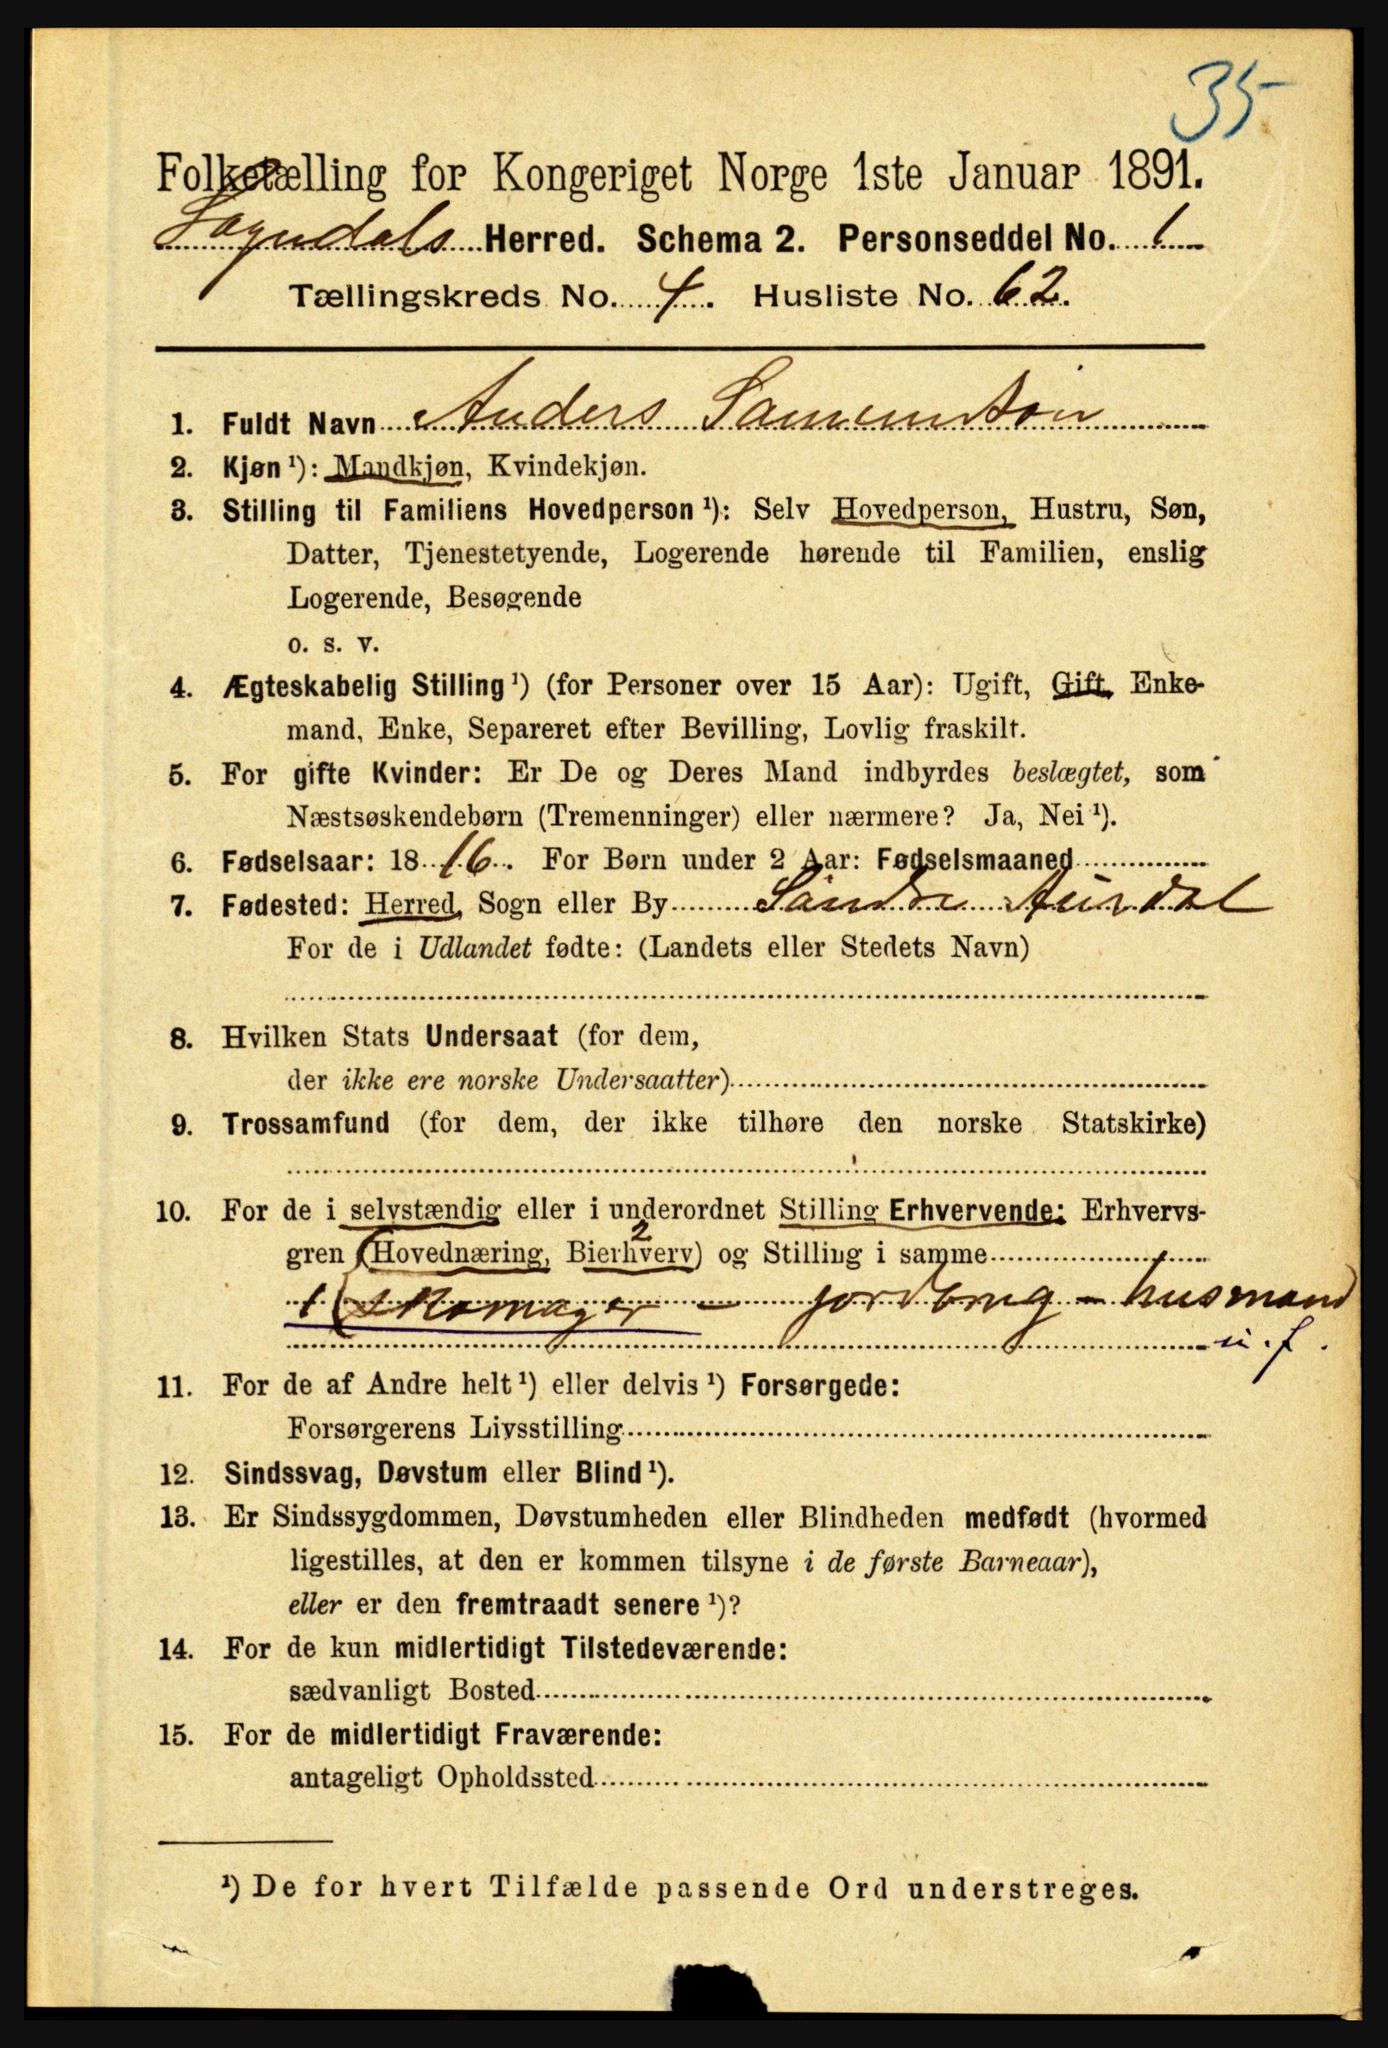 35
Folketælling for Kongeriget Norge 1ste Januar 1891.
Sogndals Herred. Schema 2. Personseddel No. 1
Tællingskreds No. 4. Husliste No. 62.
1. Fuldt Navn Anders
2. Kjøn ¹): Mandkjøn, Kvindekjøn.
3. Stilling til Familiens Hovedperson ¹): Selv Hovedperson, Hustru, Søn,
Datter, Tjenestetyende, Logerende hørende til Familien, enslig
Logerende, Besøgende
o. s. v.
4. Ægteskabelig Stilling ¹) (for Personer over 15 Aar): Ugift, Gift, Enke-
mand, Enke, Separeret efter Bevilling, Lovlig fraskilt.
5. For gifte Kvinder: Er De og Deres Mand indbyrdes beslægtet, som
Næstsøskendebørn (Tremenninger) eller nærmere? Ja, Nei ¹).
6. Fødselsaar: 1816. For Børn under 2 Aar: Fødselsmaaned
7. Fødested: Herred, Sogn eller By Søndre Aurdal
For de i Udlandet fødte: (Landets eller Stedets Navn)
8. Hvilken Stats Undersaat (for dem,
der ikke ere norske Undersaatter)
9. Trossamfund (for dem, der ikke tilhøre den norske Statskirke)
10. For de i selvstændig eller i underordnet Stilling Erhvervende: Erhvervs-
gren (Hovednæring, Bierhverv) og Stilling i samme
2
1 (skomager - jordbrug - husmand
u. f.
11. For de af Andre helt ¹) eller delvis ¹) Forsørgede:
Forsørgerens Livsstilling
12. Sindssvag, Døvstum eller Blind ¹).
13. Er Sindssygdommen, Døvstumheden eller Blindheden medfødt (hvormed
ligestilles, at den er kommen tilsyne i de første Barneaar),
eller er den fremtraadt senere ¹)?
14. For de kun midlertidigt Tilstedeværende:
sædvanligt Bosted
15. For de midlertidigt Fraværende:
antageligt Opholdssted
¹) De for hvert Tilfælde passende Ord understreges.